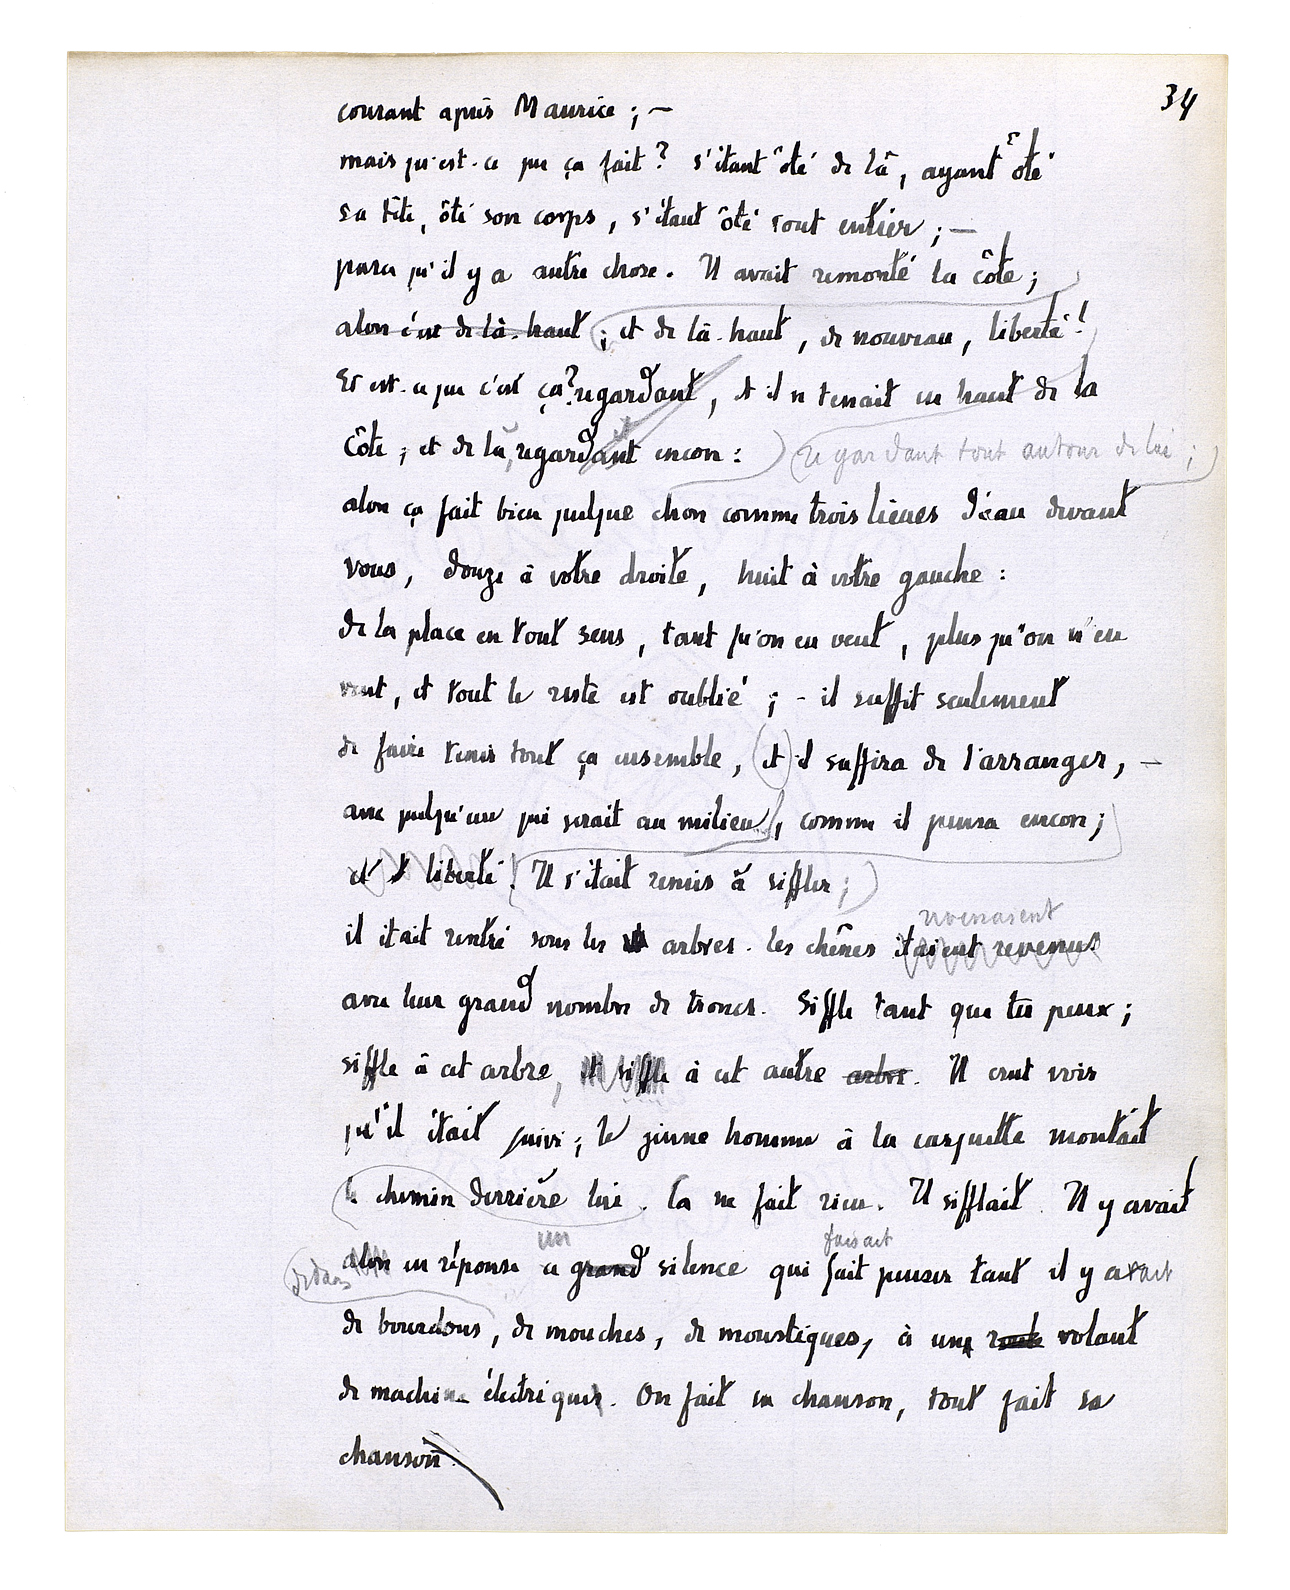 34
courant après Maurice ; —
mais qu'est-ce que ça fait ? s'étant ôté de là, ayant ôté
sa tête, ôté son corps, s'étant ôté tout entier ; —
parce qu'il y a autre chose. Il avait remonté la côte ;
alors c'est de là-haut ; et de là-haut, de nouveau, liberté !
Et est-ce que c'est ça ? regardant, et il se tenait en haut de la
côte ; et de là, regardant encore : regardant tout autour de lui ;
alors ça fait bien quelque chose comme trois lieues d'eau devant
vous, douze à votre droite, huit à votre gauche :
de la place en tout sens, tant qu'on en veut, plus qu'on n'en
veut, et tout le reste est oublié ; - il suffit seulement
de faire tenir tout ça ensemble, et il suffira de l'arranger, —
avec quelqu'un qui serait au milieu, comme il pensa encore ;
et liberté ! Il s'était remis à siffler ;
revenaient
il était rentré sous les arbres. Les chênes étaient revenus
avec leur grand nombre de troncs. Siffle tant que tu peux ;
siffle à cet arbre, et siffle à cet autre arbre. Il crut voir
qu'il était suivi ; le jeune homme à la casquette montait
le chemin derrière lui. Ça ne fait rien. Il sifflait. Il y avait
un faisait
dedans alors en réponse ce grand silence qui fait penser tant il y avait
de bourdons, de mouches, de moustiques, à une volant
de machine électriques. On fait sa chanson, tout fait sa
chanson.